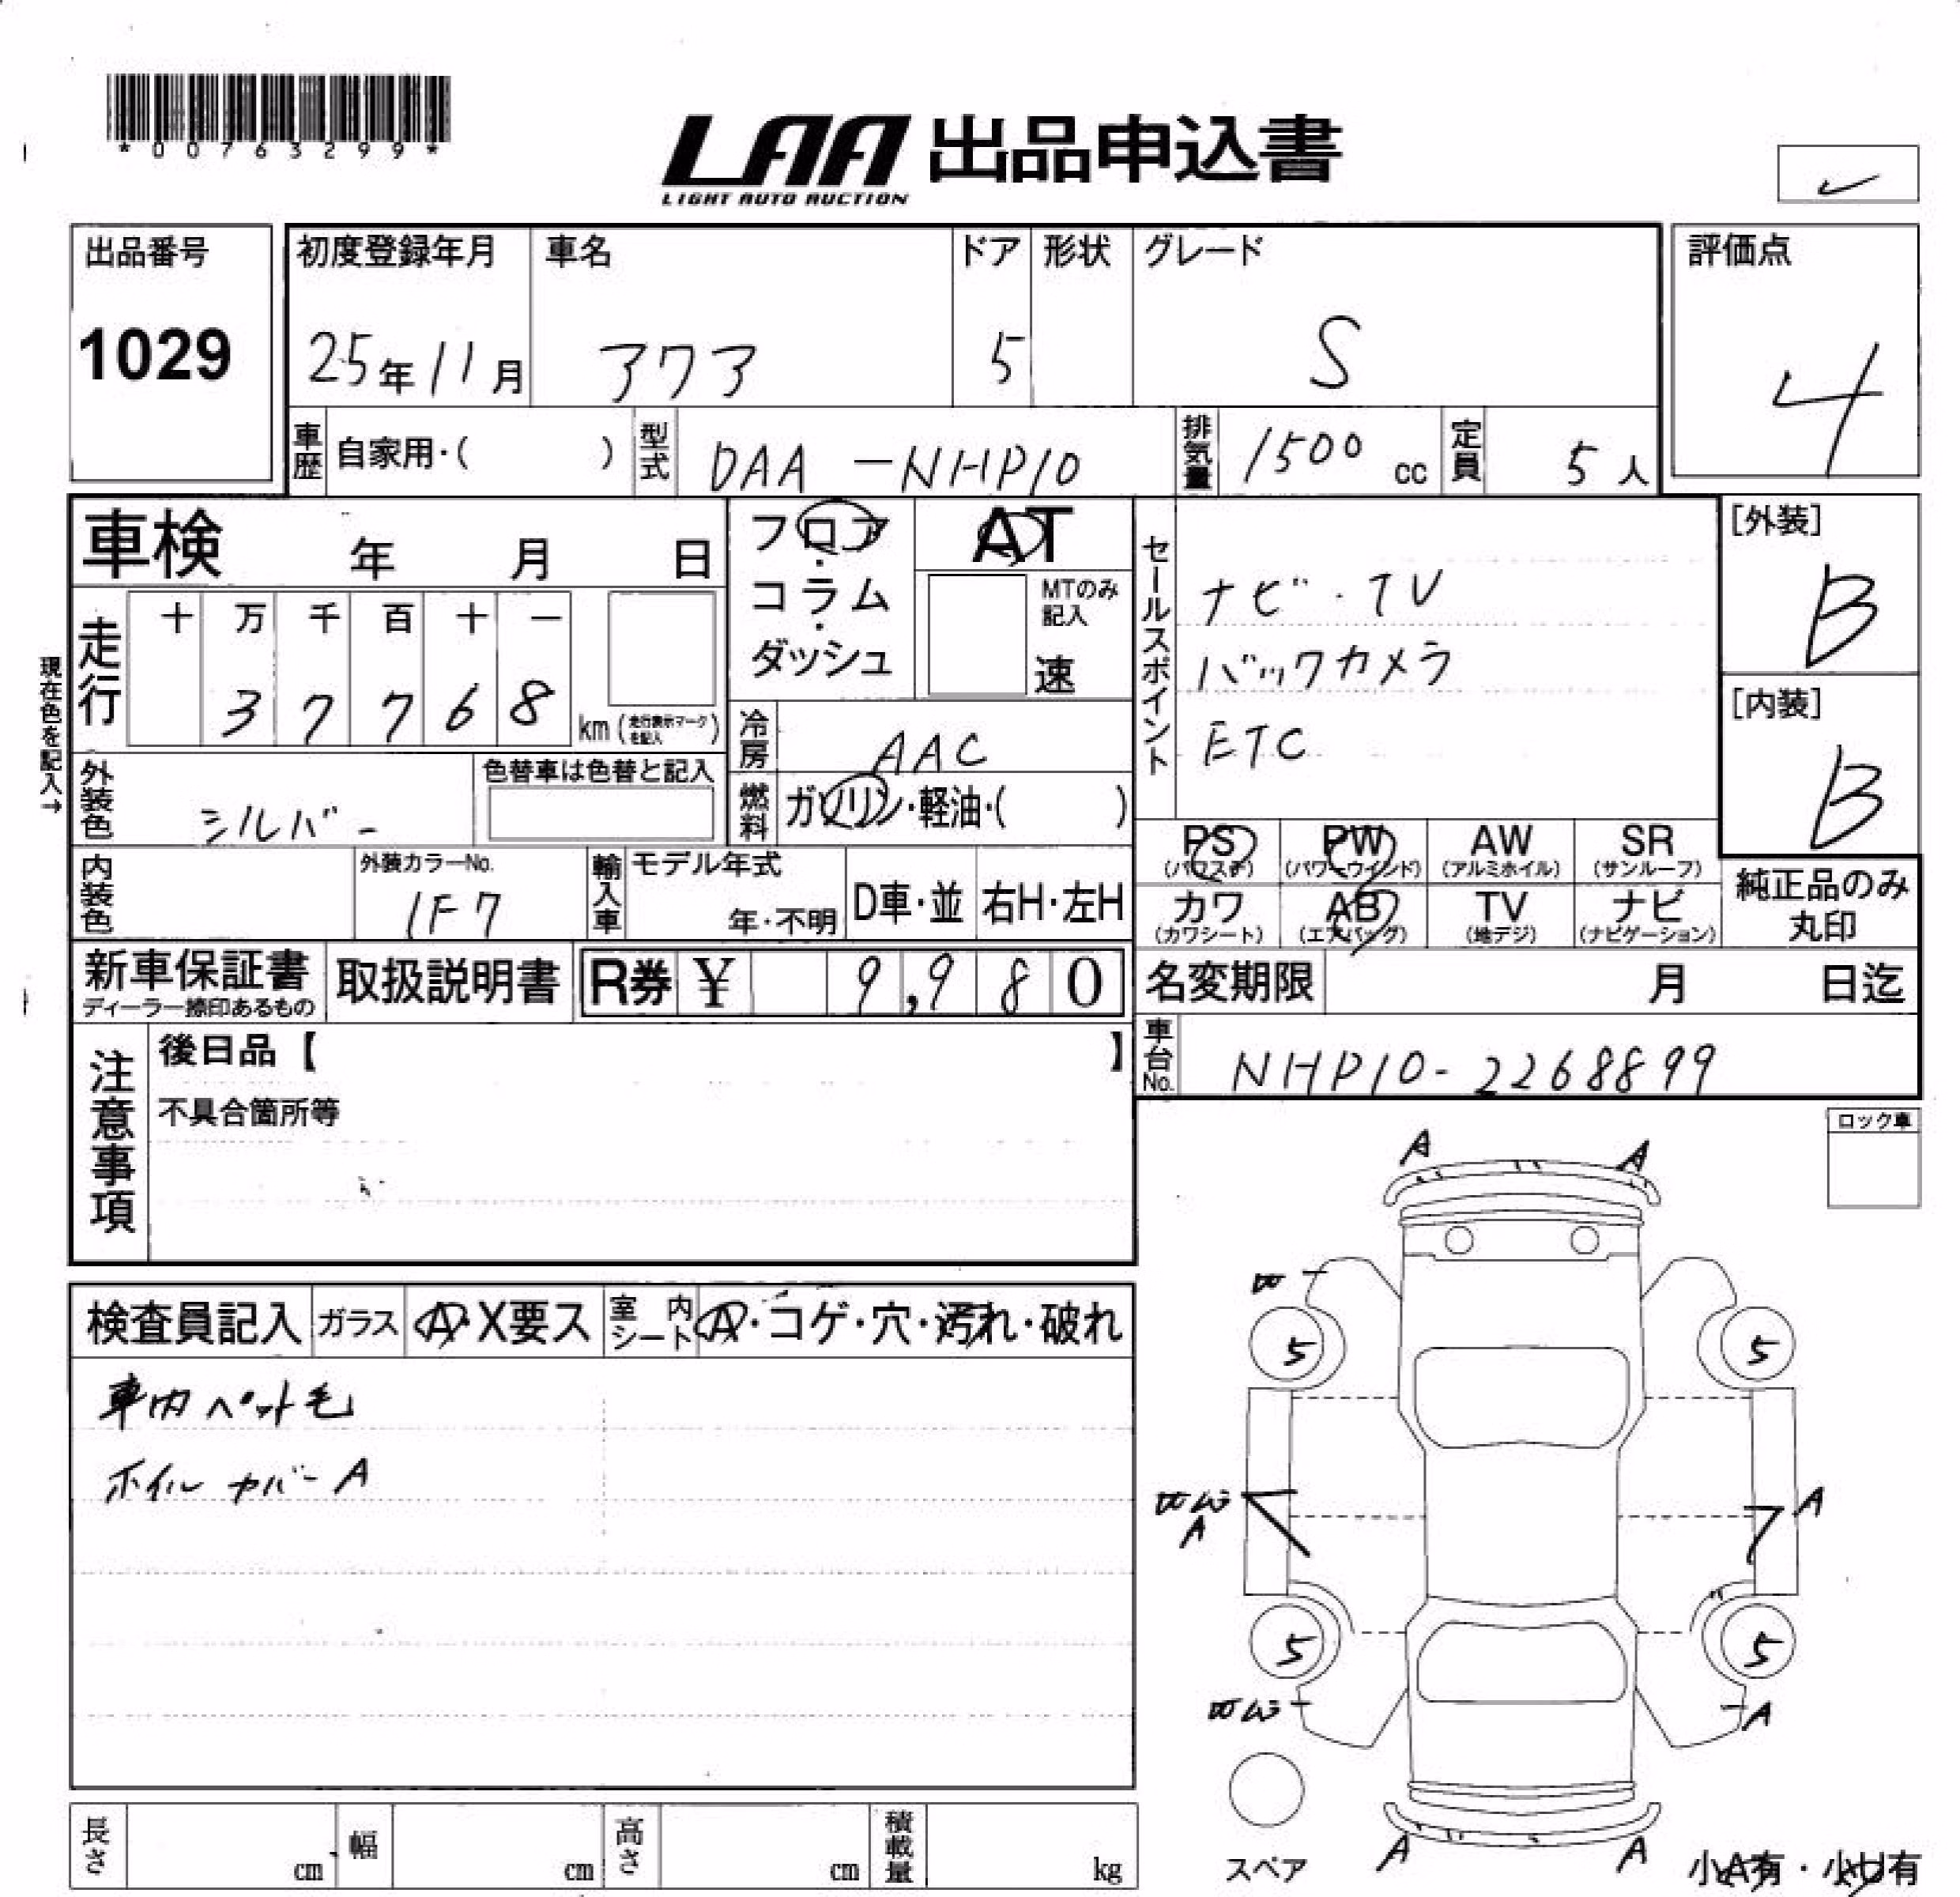 *00763299*
LAA 出品申込書
LIGHT AUTO AUCTION
出品番号
1029
初度登録年月
25年11月
車名
アクア
ドア
5
形状
グレード
S
評価点
4
車歴 自家用・( )
型式 DAA-NHP10
排気量 1500 cc
定員 5人
車検 年 月 日
フロア・コラム・ダッシュ
AT
MTのみ記入
速
セールスポイント
ナビ・TV
バックカメラ
ETC
[外装]
B
[内装]
B
現在色を記入→
走行
十 万 千 百 十 一
3 7 7 6 8 km (走行表示マークを記入)
冷房 AAC
外装色 シルバー
色替車は色替と記入
燃料 ガソリン・軽油・( )
PS (パワステ) PW (パワーウインド) AW (アルミホイル) SR (サンルーフ)
カワ (カワシート) AB (エアバッグ) TV (地デジ) ナビ (ナビゲーション)
純正品のみ丸印
内装色
外装カラーNo.
1F7
輸入車 モデル年式
年・不明 D車・並 右H・左H
新車保証書
ディーラー捺印あるもの
取扱説明書
R券 ¥ 9,980
名変期限 月 日迄
車台No. NHP10-2268899
注意事項
後日品【 】
不具合箇所等
ロック車
検査員記入 ガラス A・X要ス 室内シート A・コゲ・穴・汚れ・破れ
車内ペット毛
ホイルカバーA
A A
5 5
A A
5 5
A
A A
スペア
小A有・小U有
長さ cm 幅 cm 高さ cm 積載量 kg